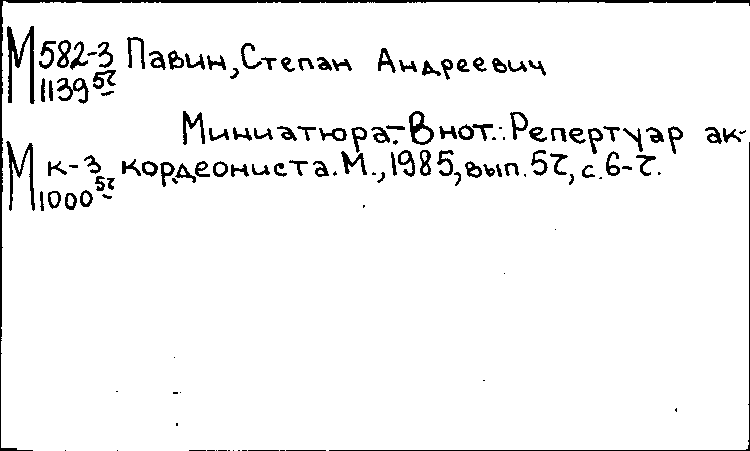 М 582-3 Павин, Степан Андреевич
1139 57
Миниатюра.- В нот.: Репертуар ак-
М к-3 кордеониста. М., 1985, вып. 57, с. 6-7.
1000 57